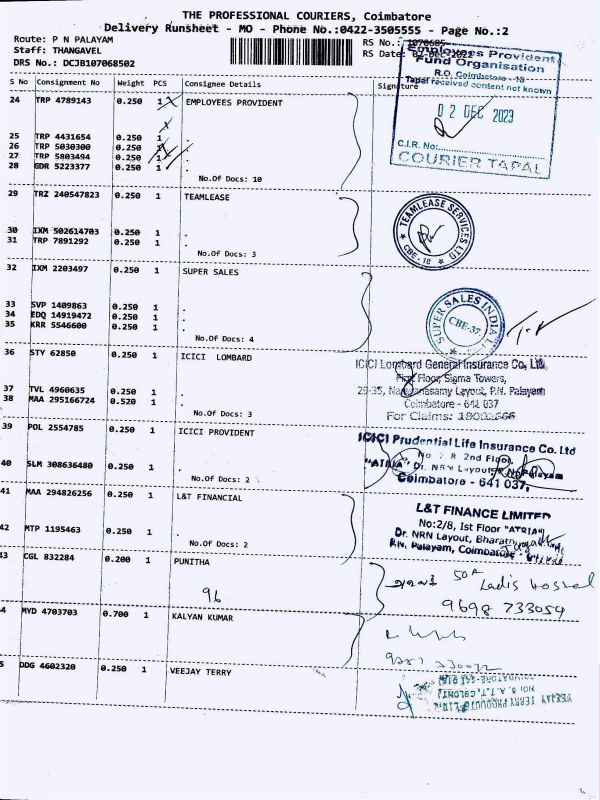 THE PROFESSIONAL COURIERS, Coimbatore
Delivery Runsheet - MO - Phone No.:0422-3505555 - Page No.:2
Route: P N PALAYAM
Staff: THANGAVEL
DRS No.: DCJB107068502
RS No.: 1070685
RS Date: 02-Dec-2022
Employees Provident
Fund Organisation
R.O. Coimbatore - 18
Tapal received content not known
0 2 DEC 2023
C.I.R. No:
COURIER TAPAL
S No Consignment No Weight PCS Consignee Details Signature
24 TRP 4789143 0.250 1 EMPLOYEES PROVIDENT
25 TRP 4431654 0.250 1 .
26 TRP 5030300 0.250 1 .
27 TRP 5803494 0.250 1 .
28 GDR 5223377 0.250 1 .
No.Of Docs: 10
29 TRZ 240547823 0.250 1 TEAMLEASE
30 IXM 502614703 0.250 1 .
31 TRP 7891292 0.250 1 .
No.Of Docs: 3
TEAMLEASE SERVICES LTD
CBE-18
32 IXM 2203497 0.250 1 SUPER SALES
33 SVP 1409863 0.250 1 .
34 EDQ 14919472 0.250 1 .
35 KRR 5546600 0.250 1 .
No.Of Docs: 4
SUPER SALES INDIA
CBE-37.
36 STY 62850 0.250 1 ICICI LOMBARD
37 TVL 4960635 0.250 1 .
38 MAA 295166724 0.520 1 .
No.Of Docs: 3
ICICI Lombard General Insurance Co, Ltd,
First Floor, Sigma Towers,
29-35, Narayanasamy Layout, P.N. Palayam
Coimbatore - 641 037
For Claims:
39 POL 2554785 0.250 1 ICICI PROVIDENT
40 SLM 308636480 0.250 1 .
No.Of Docs: 2
ICICI Prudential Life Insurance Co. Ltd
2nd Floor,
"ATRIA" Dr. NRN Layout, P.N. Palayam
Coimbatore - 641 037,
41 MAA 294826256 0.250 1 L&T FINANCIAL
42 MTP 1195463 0.250 1 .
No.Of Docs: 2
L&T FINANCE LIMITED
No:2/8, Ist Floor "ATRIA"
Dr. NRN Layout, Bharathi
P.N. Palayam, Coimbatore
43 CGL 832284 0.200 1 PUNITHA
96
50A Ladis Hostel
9698 733054
44 MYD 4703703 0.700 1 KALYAN KUMAR
45 DDG 4602320 0.250 1 VEEJAY TERRY
VEEJAY TERRY PRODUCTS LTD.
NO: 8, A.T.T. COLONY